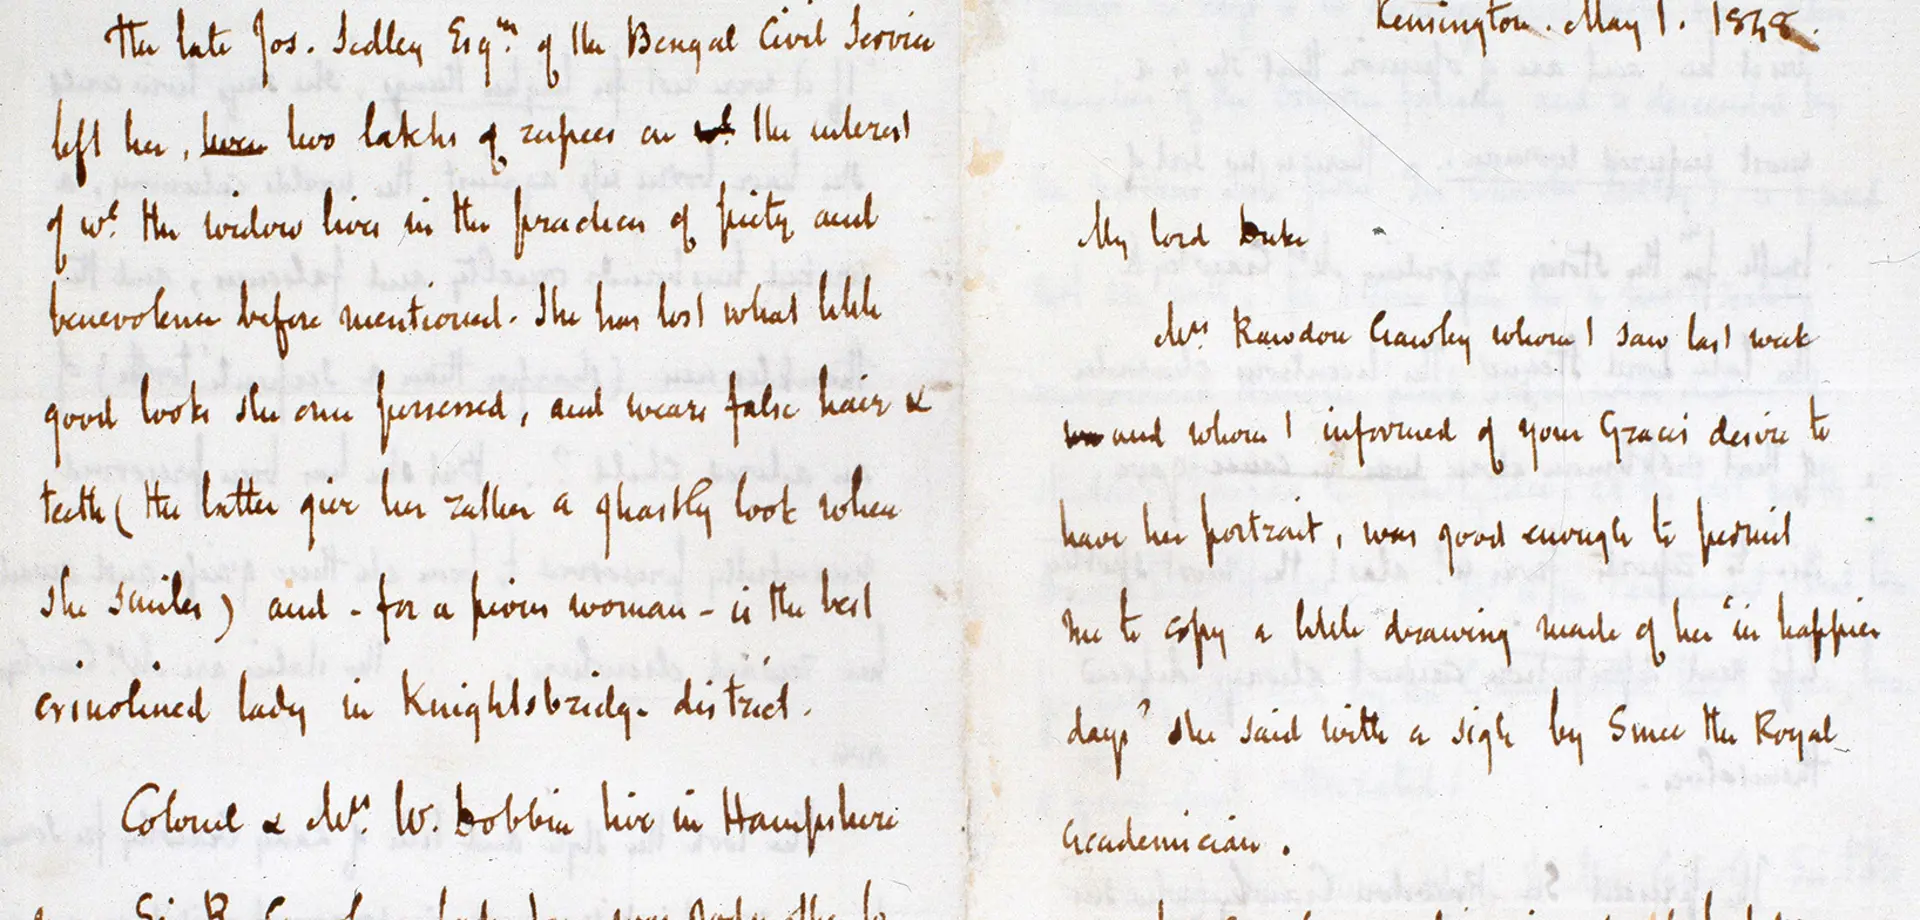 The late Jos. Sedley Esqre. of the Bengal Civil Service
left her, two lakhs of rupees on the interest
of wh. the widow lives in the practices of piety and
benevolence before mentioned. She has lost what little
good looks she once possessed, and wears false hair &
teeth (the latter give her rather a ghastly look when
she smiles) and - for a pious woman - is the best
crinolined lady in Knightsbridge district.
Colonel & Mrs. W. Dobbin live in Hampshire
Sir R. Crawley
Kensington. May 1. 1848.
My lord Duke
Mrs Rawdon Crawley whom I saw last week
and whom I informed of your Graces desire to
have her portrait, was good enough to permit
me to copy a little drawing made of her "in happier
days" she said with a sigh by Smee the Royal
Academician.